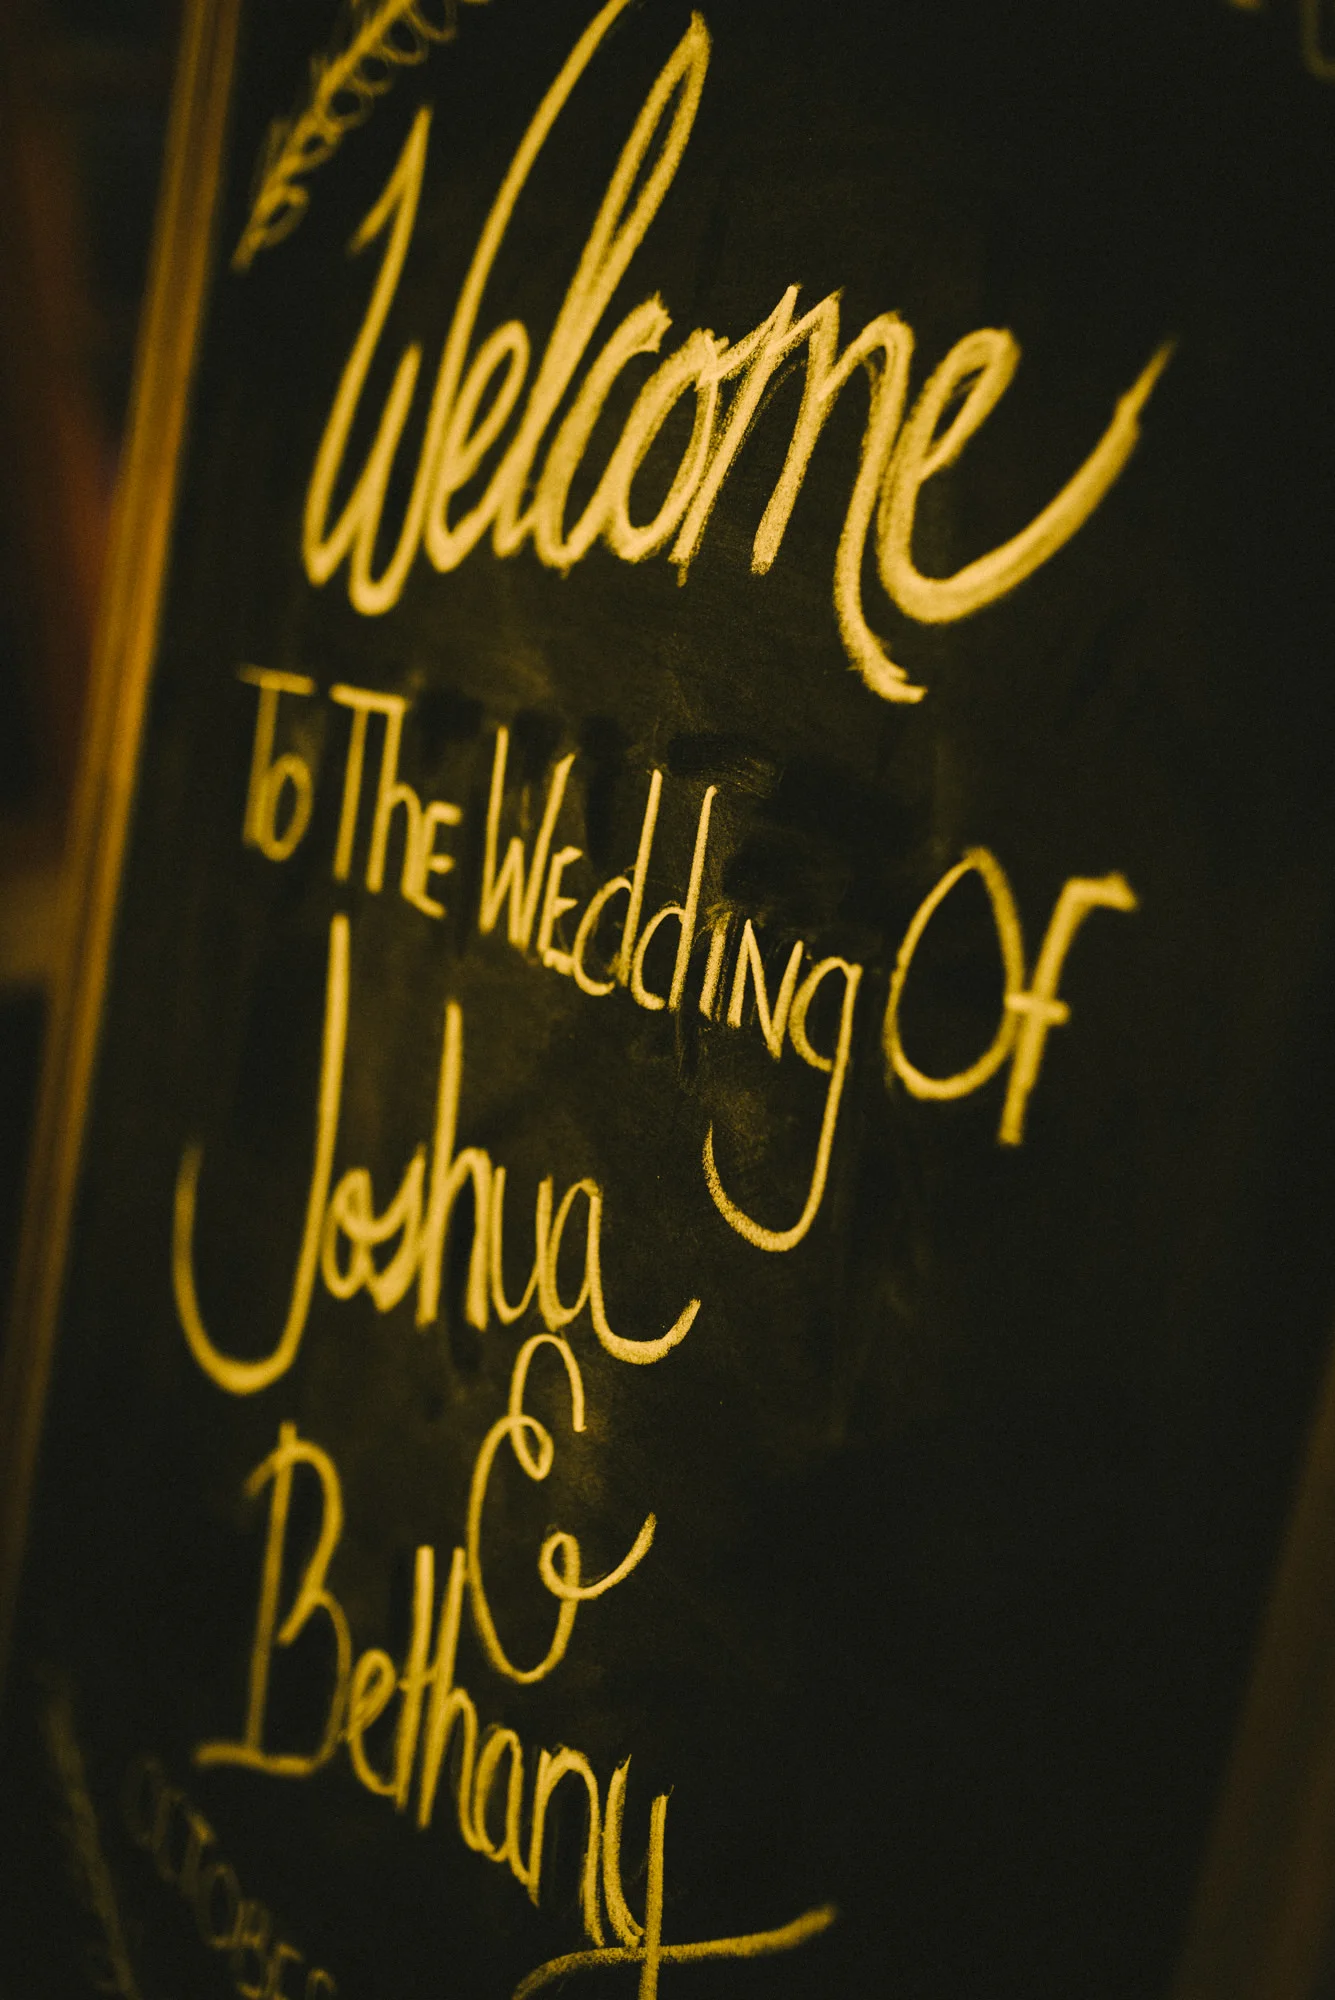 Welcome
To The Wedding Of
Joshua
&
Bethany
October